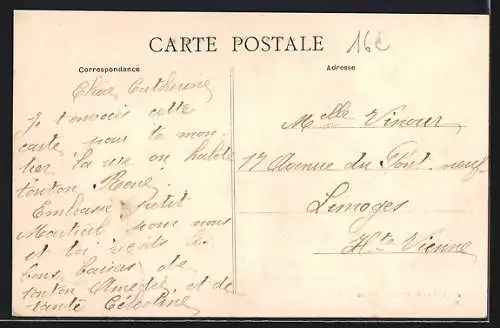 CARTE POSTALE
16€
Correspondance
Adresse
Chère Catherine
Je t'envoies cette
carte pour te mon-
trer la rue ou habite
tonton René.
Embrasse petit
Martial pour nous
et toi reçois les
bons baisers de
tonton Amédée et de
tante Célestine
Melle Vinour
17 Avenue du Pont-neuf
Limoges
Hte Vienne